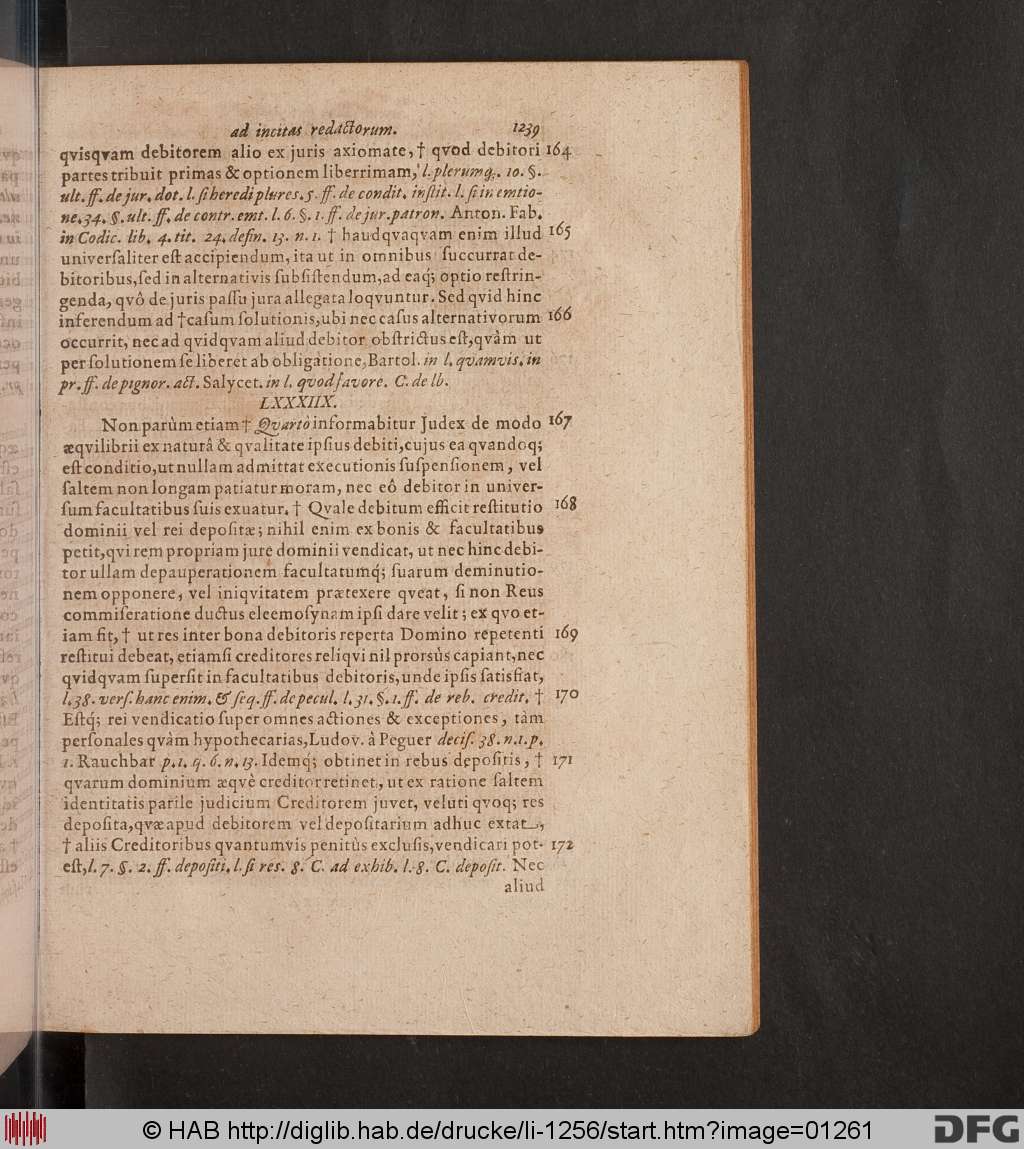 ad incitas redactorum. 1239
qvisqvam debitorem alio ex juris axiomate, † qvod debitori 164
partes tribuit primas & optionem liberrimam, l. plerumq;. 10. §.
ult. ff. de jur. dot. l. ſi heredi plures. 5. ff. de condit. inſtit. l. ſi in emtio-
ne. 34. §. ult. ff. de contr. emt. l. 6. §. 1. ff. de jur. patron. Anton. Fab.
in Codic. lib. 4. tit. 24. defin. 13. n. 1. † haudqvaqvam enim illud 165
univerſaliter eſt accipiendum, ita ut in omnibus ſuccurrat de-
bitoribus, ſed in alternativis ſubſiſtendum, ad eaq; optio reſtrin-
genda, qvô de juris paſſu jura allegata loqvuntur. Sed qvid hinc
inferendum ad † caſum ſolutionis, ubi nec caſus alternativorum 166
occurrit, nec ad qvidqvam aliud debitor obſtrictus eſt, qvàm ut
per ſolutionem ſe liberet ab obligatione, Bartol. in l. qvamvis. in
pr. ff. de pignor. act. Salycet. in l. qvod favore. C. de lb.
LXXXIIX.
Non parùm etiam † Qvartò informabitur Judex de modo 167
æqvilibrii ex naturâ & qvalitate ipſius debiti, cujus ea qvandoq;
eſt conditio, ut nullam admittat executionis ſuſpenſionem, vel
ſaltem non longam patiatur moram, nec eô debitor in univer-
ſum facultatibus ſuis exuatur. † Qvale debitum efficit reſtitutio 168
dominii vel rei depoſitæ; nihil enim ex bonis & facultatibus
petit, qvi rem propriam jure dominii vendicat, ut nec hinc debi-
tor ullam depauperationem facultatumq; ſuarum deminutio-
nem opponere, vel iniqvitatem prætexere qveat, ſi non Reus
commiſeratione ductus eleemoſynam ipſi dare velit; ex qvo et-
iam fit, † ut res inter bona debitoris reperta Domino repetenti 169
reſtitui debeat, etiamſi creditores reliqvi nil prorsùs capiant, nec
qvidqvam ſuperſit in facultatibus debitoris, unde ipſis ſatisfiat,
l. 38. verſ. hanc enim. & ſeq. ff. de pecul. l. 31. §. 1. ff. de reb. credit. † 170
Eſtq; rei vendicatio ſuper omnes actiones & exceptiones, tàm
perſonales qvàm hypothecarias, Ludov. à Peguer deciſ. 38. n. 1. p.
1. Rauchbar p. 1. q. 6. n. 13. Idemq; obtinet in rebus depoſitis, † 171
qvarum dominium æqvè creditor retinet, ut ex ratione ſaltem
identitatis parile judicium Creditorem juvet, veluti qvoq; res
depoſita, qvæ apud debitorem vel depoſitarium adhuc extat,
† aliis Creditoribus qvantumvis penitùs excluſis, vendicari pot- 172
eſt, l. 7. §. 2. ff. depoſiti. l. ſi res. 8. C. ad exhib. l. 8. C. depoſit. Nec
aliud
© HAB http://diglib.hab.de/drucke/li-1256/start.htm?image=01261
DFG